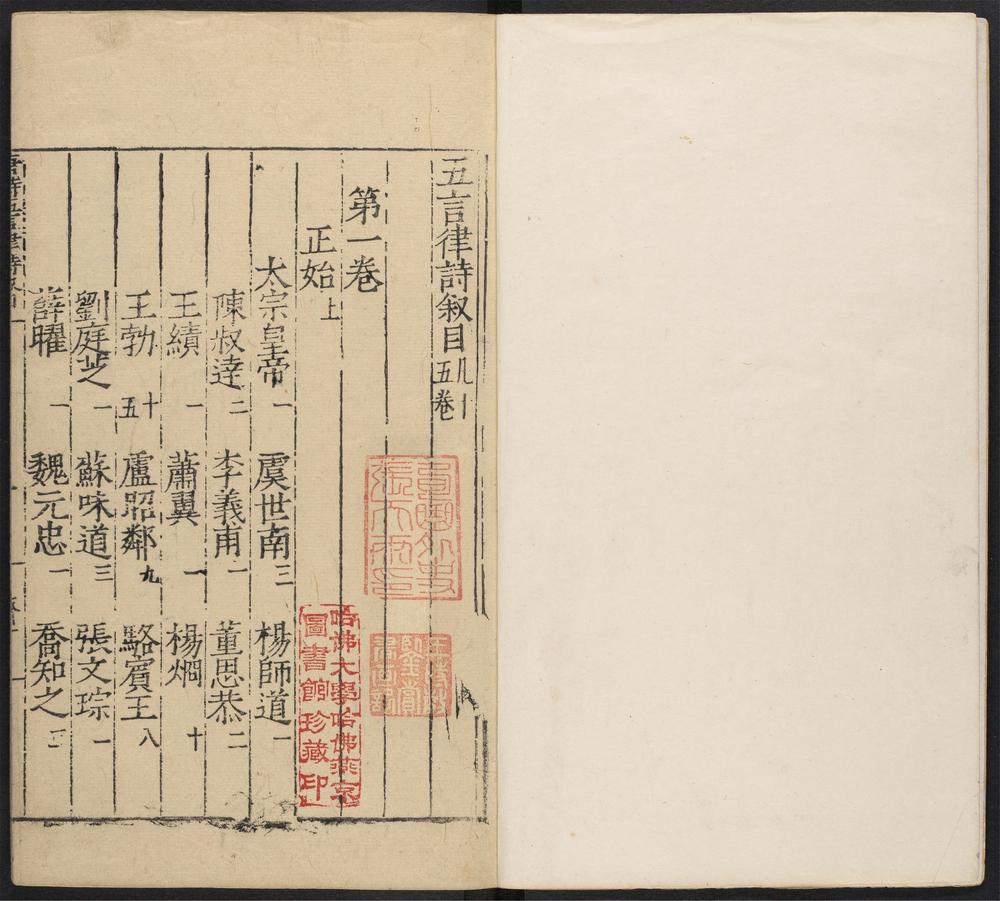 五言律詩叙目凡十五卷
第一卷
正始上
太宗皇帝一 虞世南三 楊師道一
陳叔達二 李義甫一 董思恭二
王績一 蕭翼一 楊烱十
王勃十五 盧照鄰九 駱賓王八
劉庭芝一 蘇味道三 張文琮一
薛曜一 魏元忠一 喬知之三
哈佛大學哈佛燕京圖書館珍藏印